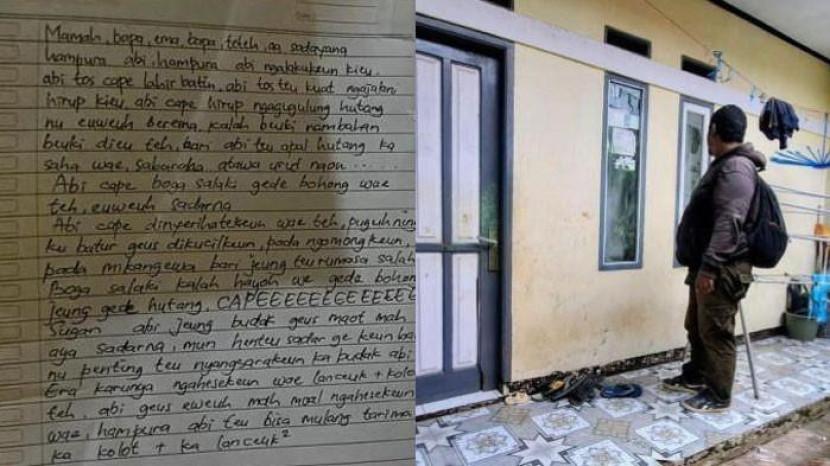 Mamah, bapa, ema, bapa, teteh, aa sadayana
hampura abi, hampura abi ngalakukeun kieu.
abi tos cape lahir batin, abi tos teu kuat ngajalani
hirup kieu, abi cape hirup ngagugulung hutang
nu euweuh berema, kalah beuki nambahan
beuki dieu teh, bari abi teu apal hutang ka
saha wae, sabaraha, atawa urut naon .....
Abi cape boga salaki gede bohong wae
teh, euweuh sadarna
Abi cape dinyerihatekeun wae teh, puguh ning
ku batur geus dikucilkeun, pada ngomongkeun,
pada mikangewa bari jeung teu rumasa salah
Boga salaki kalah hayoh we gede bohong
jeung gede hutang, CAPEEEEEEEEEEEEEE
Sugan abi jeung budak geus maot mah
aya sadarna, mun henteu sadar ge keun bae
nu penting teu nyangsarakeun ka budak abi
Era karunya ngahesekeun wae lanceuk + kolot
teh, abi geus euweuh mah moal ngahesekeun
wae, hampura abi teu bisa mulang tarima
ka kolot + ka lanceuk²